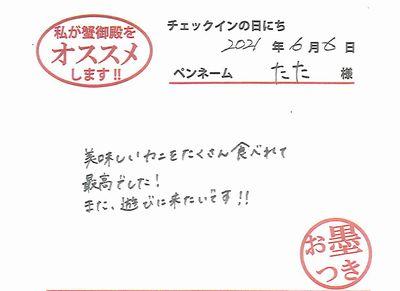 私が蟹御殿を
オススメ
します!!
チェックインの日にち
2021 年 6 月 6 日
ペンネーム たた 様
美味しいカニをたくさん食べれて
最高でした!
また、遊びに来たいです!!
お墨
つき